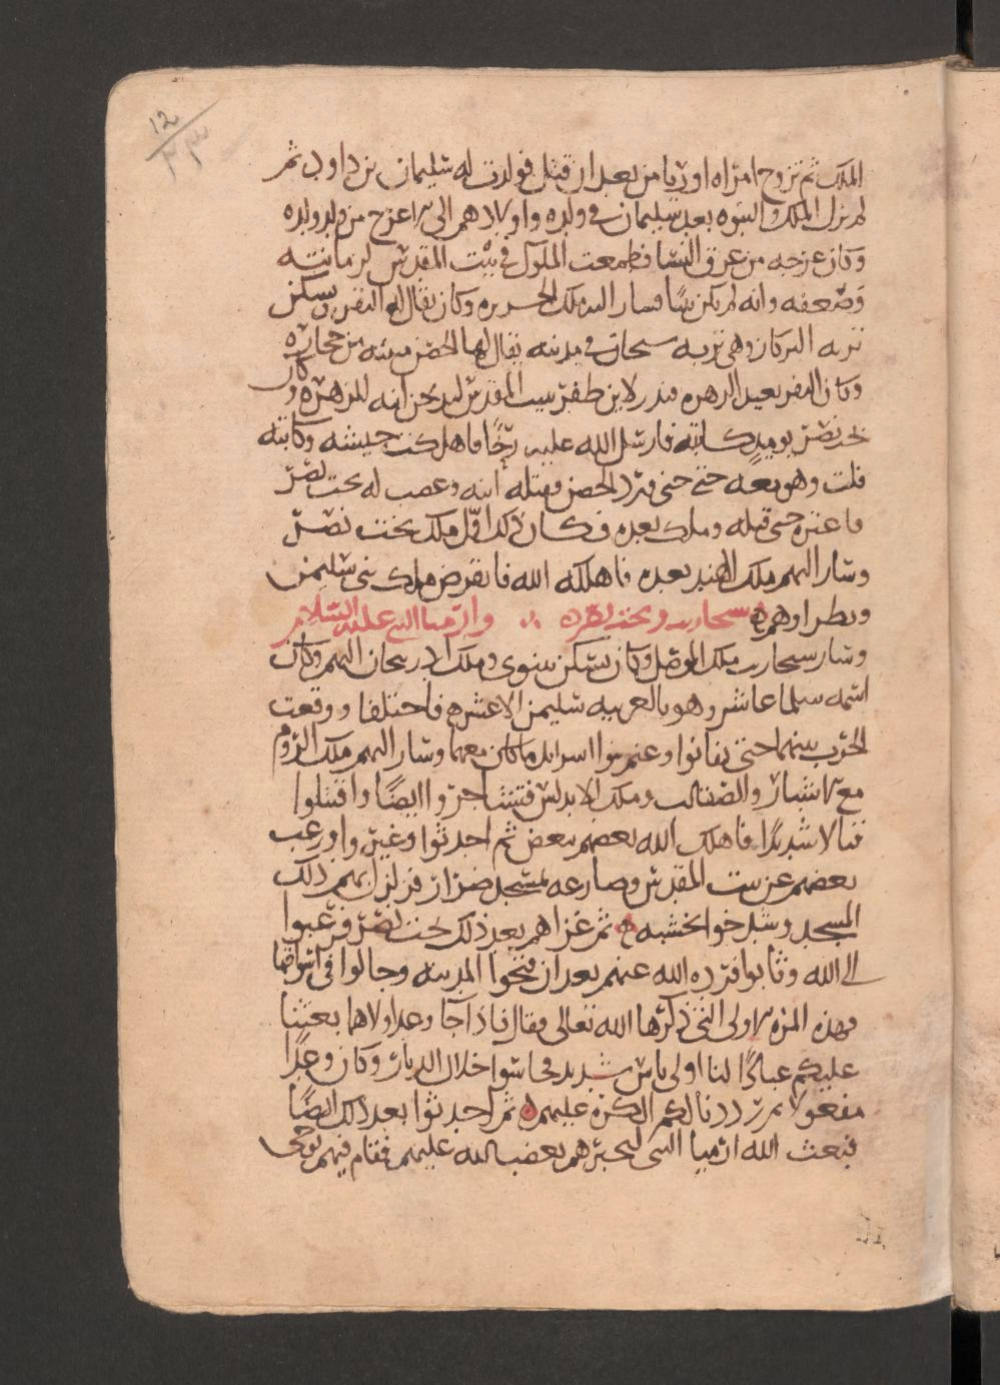 12
٢٣
الملك ثم تزوج امراه اوريا من بعد ان قتل فولدت له سليمان بن داود ثم
لم يزل الملك والنبوه بعد سليمان في ولده واولادهم الى الاعرج من ولد ولده
وكان عرجه من عرق النسا فطمعت الملوك في بيت المقدس لزمانته
وضعفه وانه لم يكن نبيا فسار اليه ملك الجزيره وكان يقال له النفر ويسكن
بريه وهى بريه سنحار في مدينه يقال لها الحضر مبنيه من حجاره
وكان النفر يعبد الزهره فنذر لاين ظفر ببيت المقدس ليذبحن ابنه للزهره وكان
بخت نصر يوميذ كاتبه فارسل الله عليه ريحا فاهلكت جيشه وكاتبه
فلت وهو معه حتى ورد الحضر فقتله ابنه وغضب له بخت نصر
فاغتره حتى قتله وملك بعده فكان ذلك اول ملك بخت نصر
وسار اليهم ملك الهند بعده فاهلكه الله فانقرض ملك بني سليمن
ونظراوهم ه سنحارب وبخت نصره ∴ وارميا النبي عليه السلام
وسار سنحارب ملك الموصل وكان يسكن نينوى وملك ادربيجان اليهم وكان
اسمه سلما عاشر وهو بالعربيه سليمن الاعسر فاختلفا ووقعت
الحرب بينهما حتى تفانوا وغنم بنوا اسرايل ما كان معهما وسار اليهم ملك الروم
مع والصقالب وملك الاندلس فتشاجروا ايضا واقتتلوا
قتالا شديدا فاهلك الله بعضهم ببعض ثم احدثوا وغيروا ورغب
بعضهم عن بيت المقدس وصارعه بمسجد ضرار فزلزل بهم ذلك
المسجد وشدخوا بخشبه ه ثم غزاهم بعد ذلك بخت نصر فرغبوا
الى الله وتابوا فرده الله عنهم بعد ان فتحوا المدينه وجالوا في اسواقها
فهذه المره الاولى التى ذكرها الله تعالى فقال فاذا جآ وعد اولاهما بعثنا
عليكم عبادا لنا اولى باس شديد فجاسوا خلال الديار وكان وعدا
مفعولا ثم رددنا لكم الكره عليهم ه ثم احدثوا بعد ذلك ايضا
فبعث الله ارميا النبى ليخبرهم بغضب الله عليهم فقام فيهم بوحى